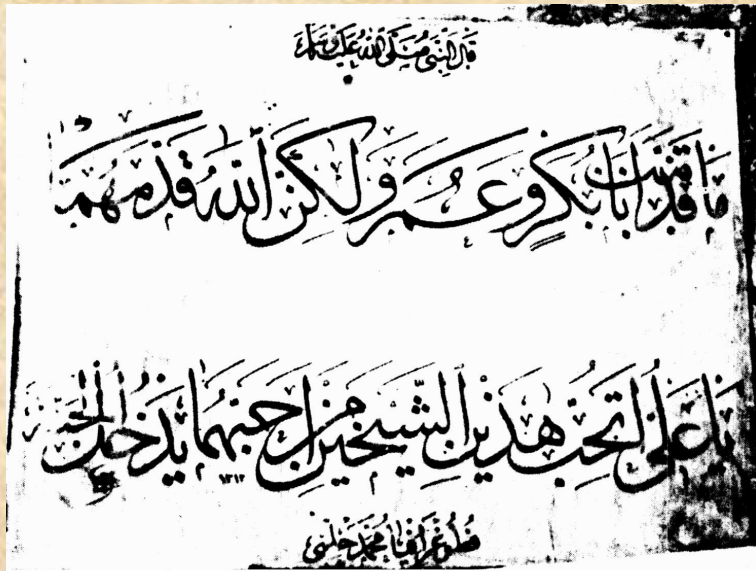 قال النبي صلى الله عليه وسلم
ما قدمت أبا بكر وعمر ولكن الله قدمهما
يا علي أتحب هذين الشيخين من احبهما يدخل الجنة
١٣١٢
محمد حلمي